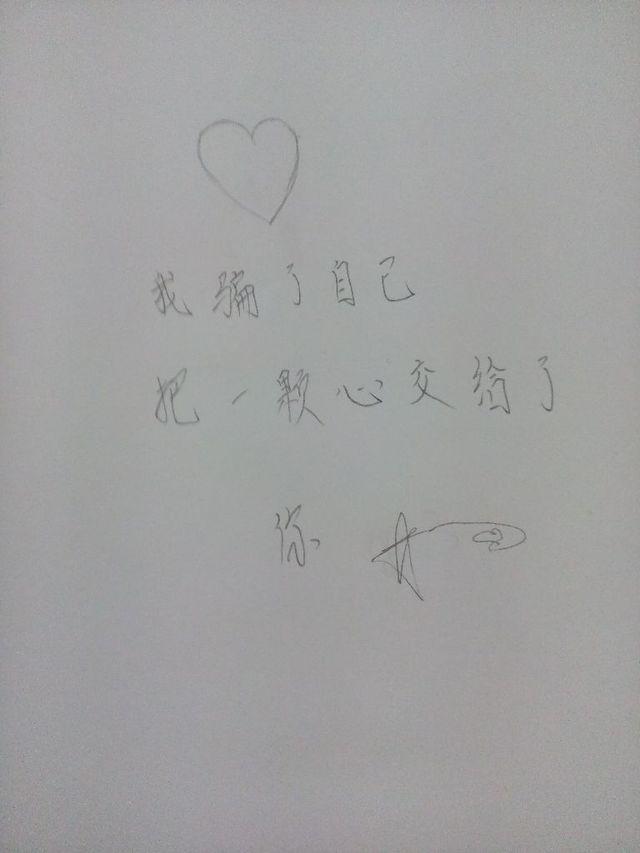 我骗了自己
把一颗心交给了
你